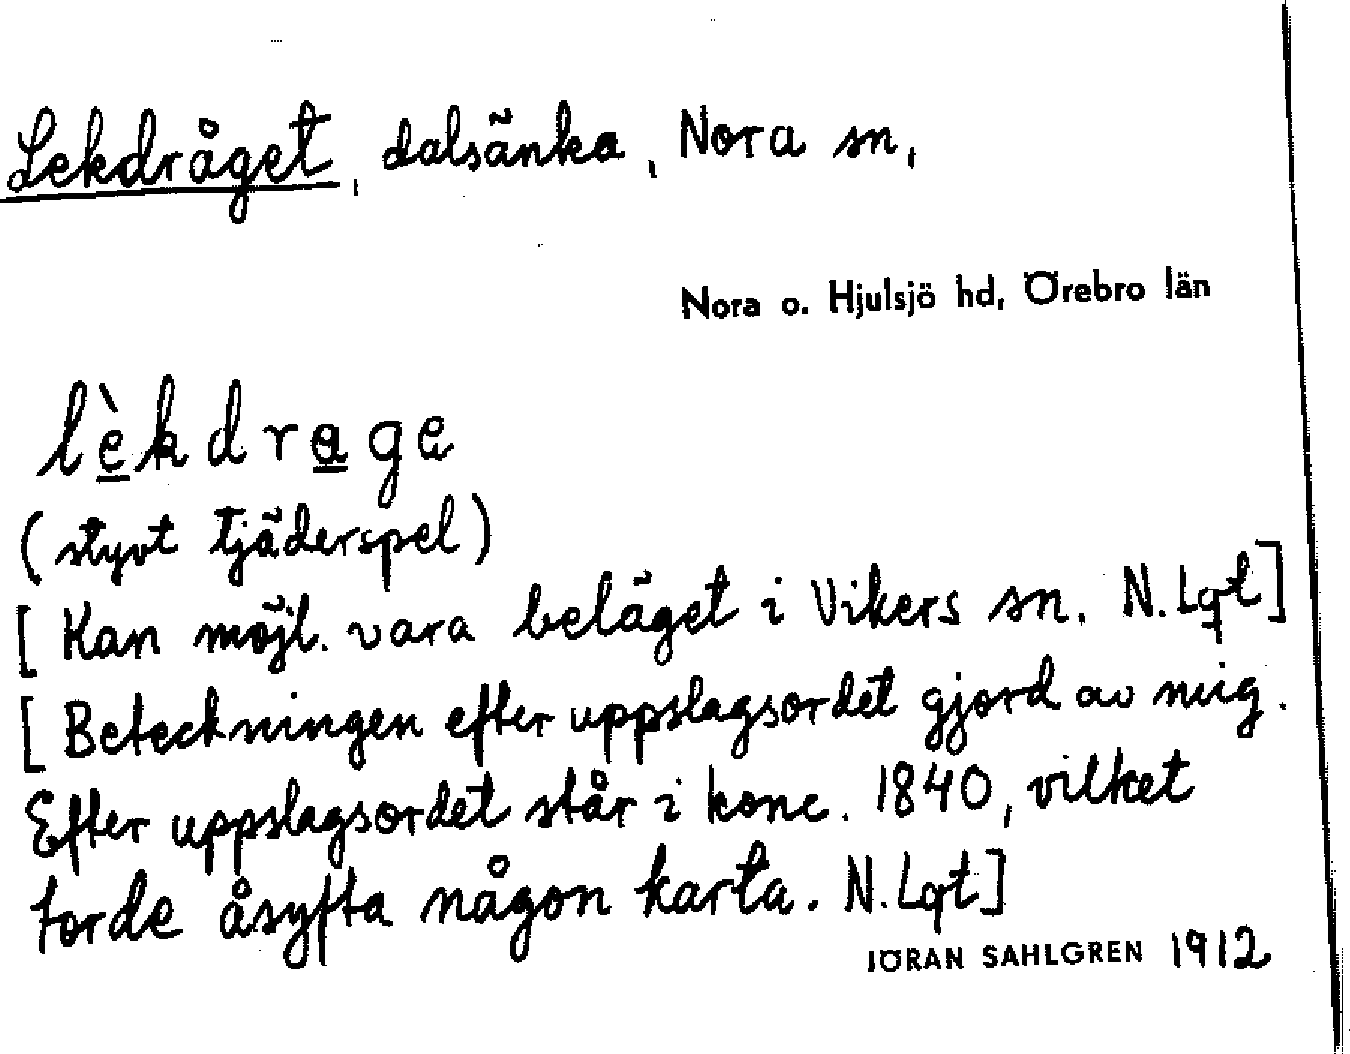 Lekdråget, dalsänka, Nora sn,
Nora o. Hjulsjö hd, Örebro län
lèkdrage
(styvt tjäderspel)
[Kan möjl. vara beläget i Vikers sn. N. Lqt]
[Beteckningen efter uppslagsordet gjord av mig.
Efter uppslagsordet står i konc. 1840, vilket
torde åsyfta någon karta. N. Lqt]
JÖRAN SAHLGREN 1912